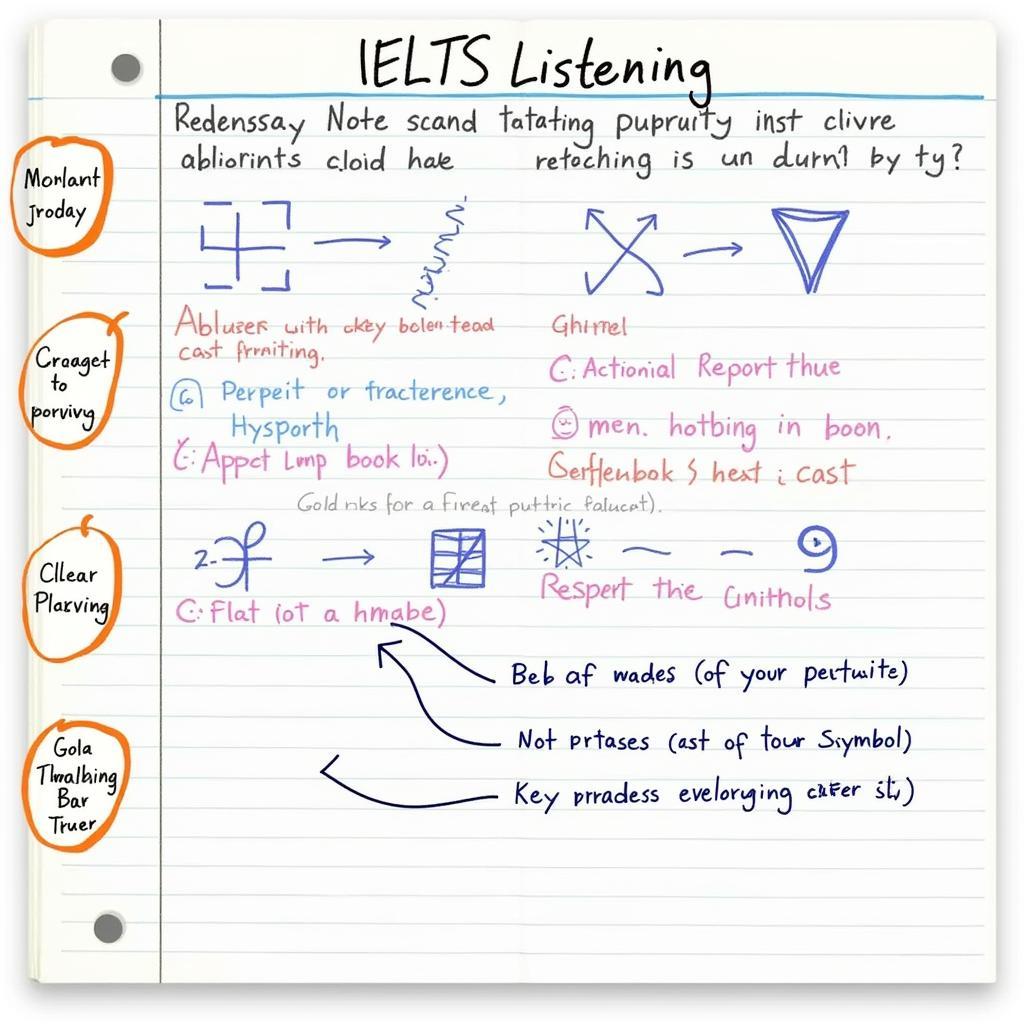 IELTS Listening
Redenssay Note scand tatating pupruity inst clivre
abliorints cloid hale retoching is un durn1 by ty?
Morlant
Jroday
Abluser with ckey bolen tead
cast frmiting.
Ghimel
C: Actionial Report thue
Craaget
to
porvivg
Perpeit or fracterence,
Hysporth
men. hotbing in boon.
C: Appct Lmp book loi.)
Gerflenbok S heat i cast
Gold nks for a Fireat puttric falucat).
2-
Cllear
Plarving
C: Flat iot a hmabe)
Respert the Cinithols
Beb af wades (of your pertwite)
Not prtases (ast of tour Siymbol)
Key prradess evelorging cater sti)
Gola
Thvalbing
Bar
Truer